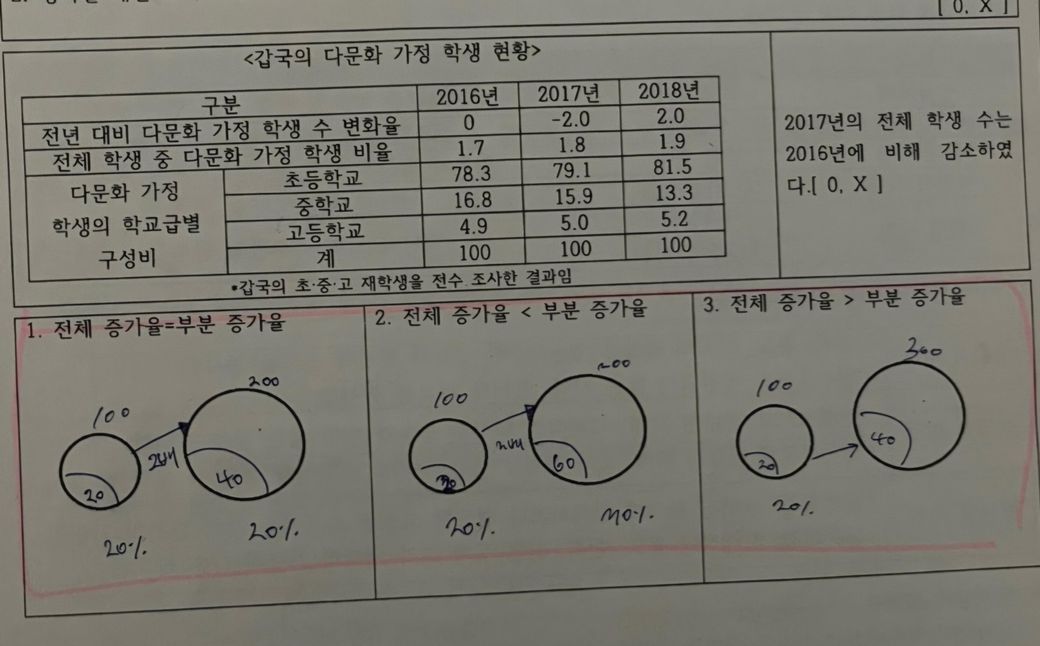 [ 0, X ]
<갑국의 다문화 가정 학생 현황>
구분 2016년 2017년 2018년
전년 대비 다문화 가정 학생 수 변화율 0 -2.0 2.0
전체 학생 중 다문화 가정 학생 비율 1.7 1.8 1.9
다문화 가정 학생의 학교급별 구성비
초등학교 78.3 79.1 81.5
중학교 16.8 15.9 13.3
고등학교 4.9 5.0 5.2
계 100 100 100
*갑국의 초·중·고 재학생을 전수 조사한 결과임
2017년의 전체 학생 수는
2016년에 비해 감소하였
다.[ 0, X ]
1. 전체 증가율=부분 증가율
100
200
2배
20
40
20%
20%
2. 전체 증가율 < 부분 증가율
100
200
2배
60
20%
3. 전체 증가율 > 부분 증가율
100
300
20
40
20%